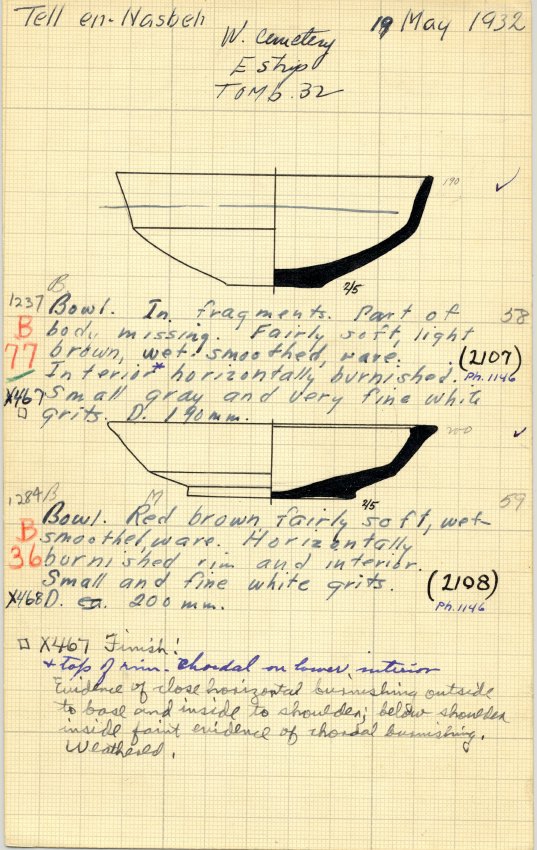 Tell en-Nasbeh 19 May 1932
W. Cemetery
E strip
Tomb. 32
190 ✓
2/5
B
1237 Bowl. In fragments. Part of 58
B body missing. Fairly soft, light
77 brown, wet-smoothed, ware. (2107)
Interior* horizontally burnished. Ph. 1146
X467 Small gray and very fine white
□ grits. D. 190 mm.
200 ✓
2/5
1284 B M 59
Bowl. Red brown, fairly soft, wet-
B smoothed, ware. Horizontally
36 burnished rim and interior.
Small and fine white grits. (2108)
X468 D. ca. 200 mm. Ph. 1146
□ X467 Finish:
+ top of rim. Chordal on lower interior
Evidence of close horizontal burnishing outside
to base and inside to shoulder; below shoulder
inside faint evidence of chordal burnishing.
Weathered.